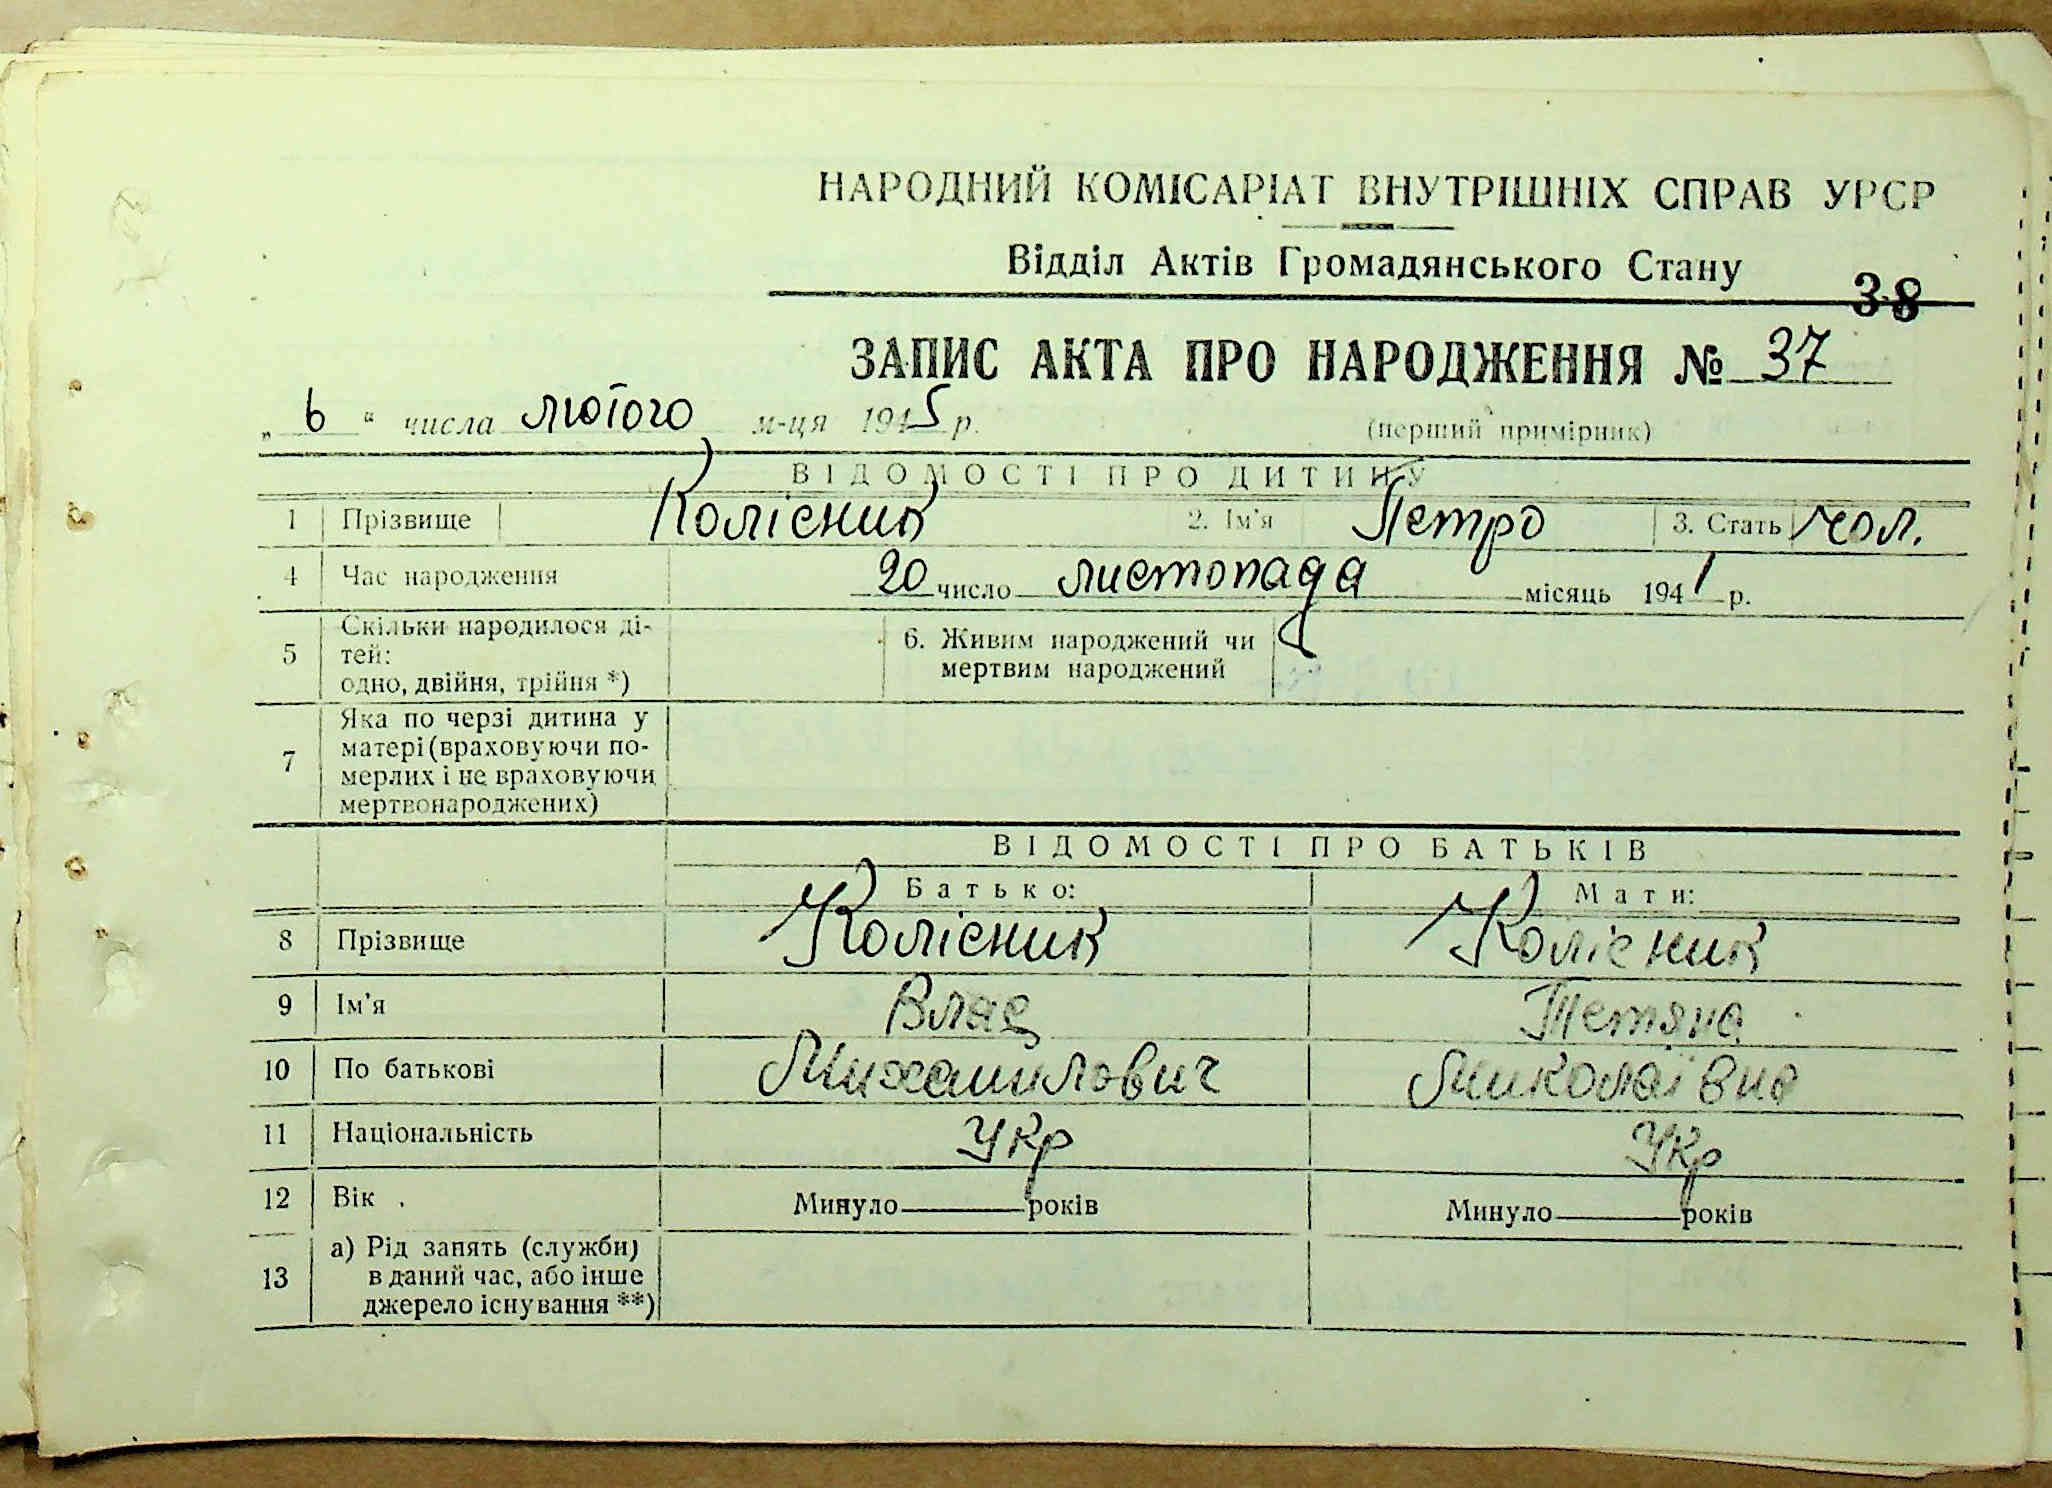 НАРОДНИЙ КОМІСАРІАТ ВНУТРІШНІХ СПРАВ УРСР
Відділ Актів Громадянського Стану
38
ЗАПИС АКТА ПРО НАРОДЖЕННЯ № 37
„ 6 “ числа лютого м-ця 1945 р. (перший примірник)
ВІДОМОСТІ ПРО ДИТИНУ
1 Прізвище Колісник 2. Ім'я Петро 3. Стать чол.
4 Час народження 20 число листопада місяць 1941 р.
5 Скільки народилося ді-
тей:
одно, двійня, трійня *)
6. Живим народжений чи
мертвим народжений
7 Яка по черзі дитина у
матері (враховуючи по-
мерлих і не враховуючи
мертвонароджених)
ВІДОМОСТІ ПРО БАТЬКІВ
Батько: Мати:
8 Прізвище Колісник Колісник
9 Ім'я Влас Тетяна
10 По батькові Михайлович Миколаївна
11 Національність Укр Укр
12 Вік . Минуло років Минуло років
13 а) Рід занять (служби)
в даний час, або інше
джерело існування **)